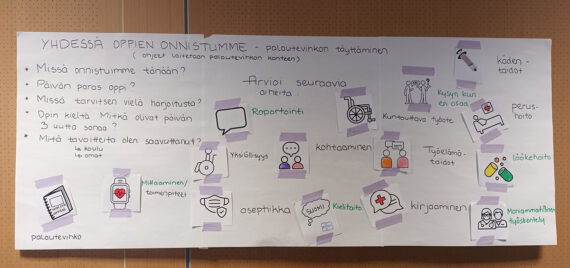 YHDESSÄ OPPIEN ONNISTUMME - palautevihkon täyttäminen
( ohjeet laitetaan palautevihkon kanteen)
• Missä onnistuimme tänään?
• Päivän paras oppi?
• Missä tarvitsen vielä harjoitusta?
• Opin kieltä. Mitkä olivat päivän
3 uutta sanaa?
• Mitä tavoitteita olen saavuttanut?
↳ koulu
↳ omat
Arvioi seuraavia
aiheita
Kysyn kun
en osaa
käden-
taidot
Raportointi
Kuntouttava työote
perus-
hoito
Yksilöllisyys
kohtaaminen
Työelämä-
taidot
lääkehoito
Mittaaminen/
toimenpiteet
aseptiikka
SUOMI
Kielitaito
kirjaaminen
Moniammatillinen
työskentely
palautevihko